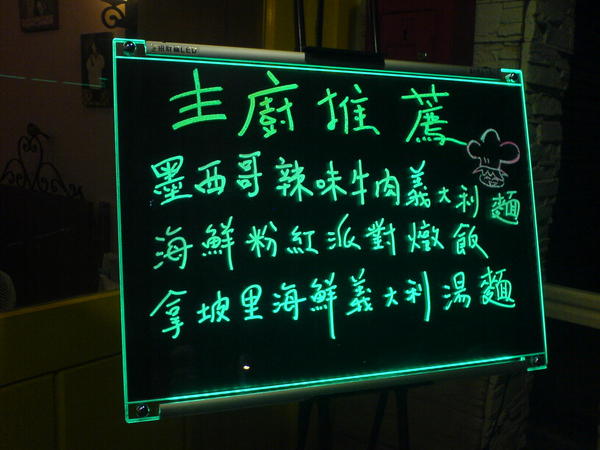 主廚推薦
墨西哥辣味牛肉義大利麵
海鮮粉紅派對燉飯
拿坡里海鮮義大利湯麵